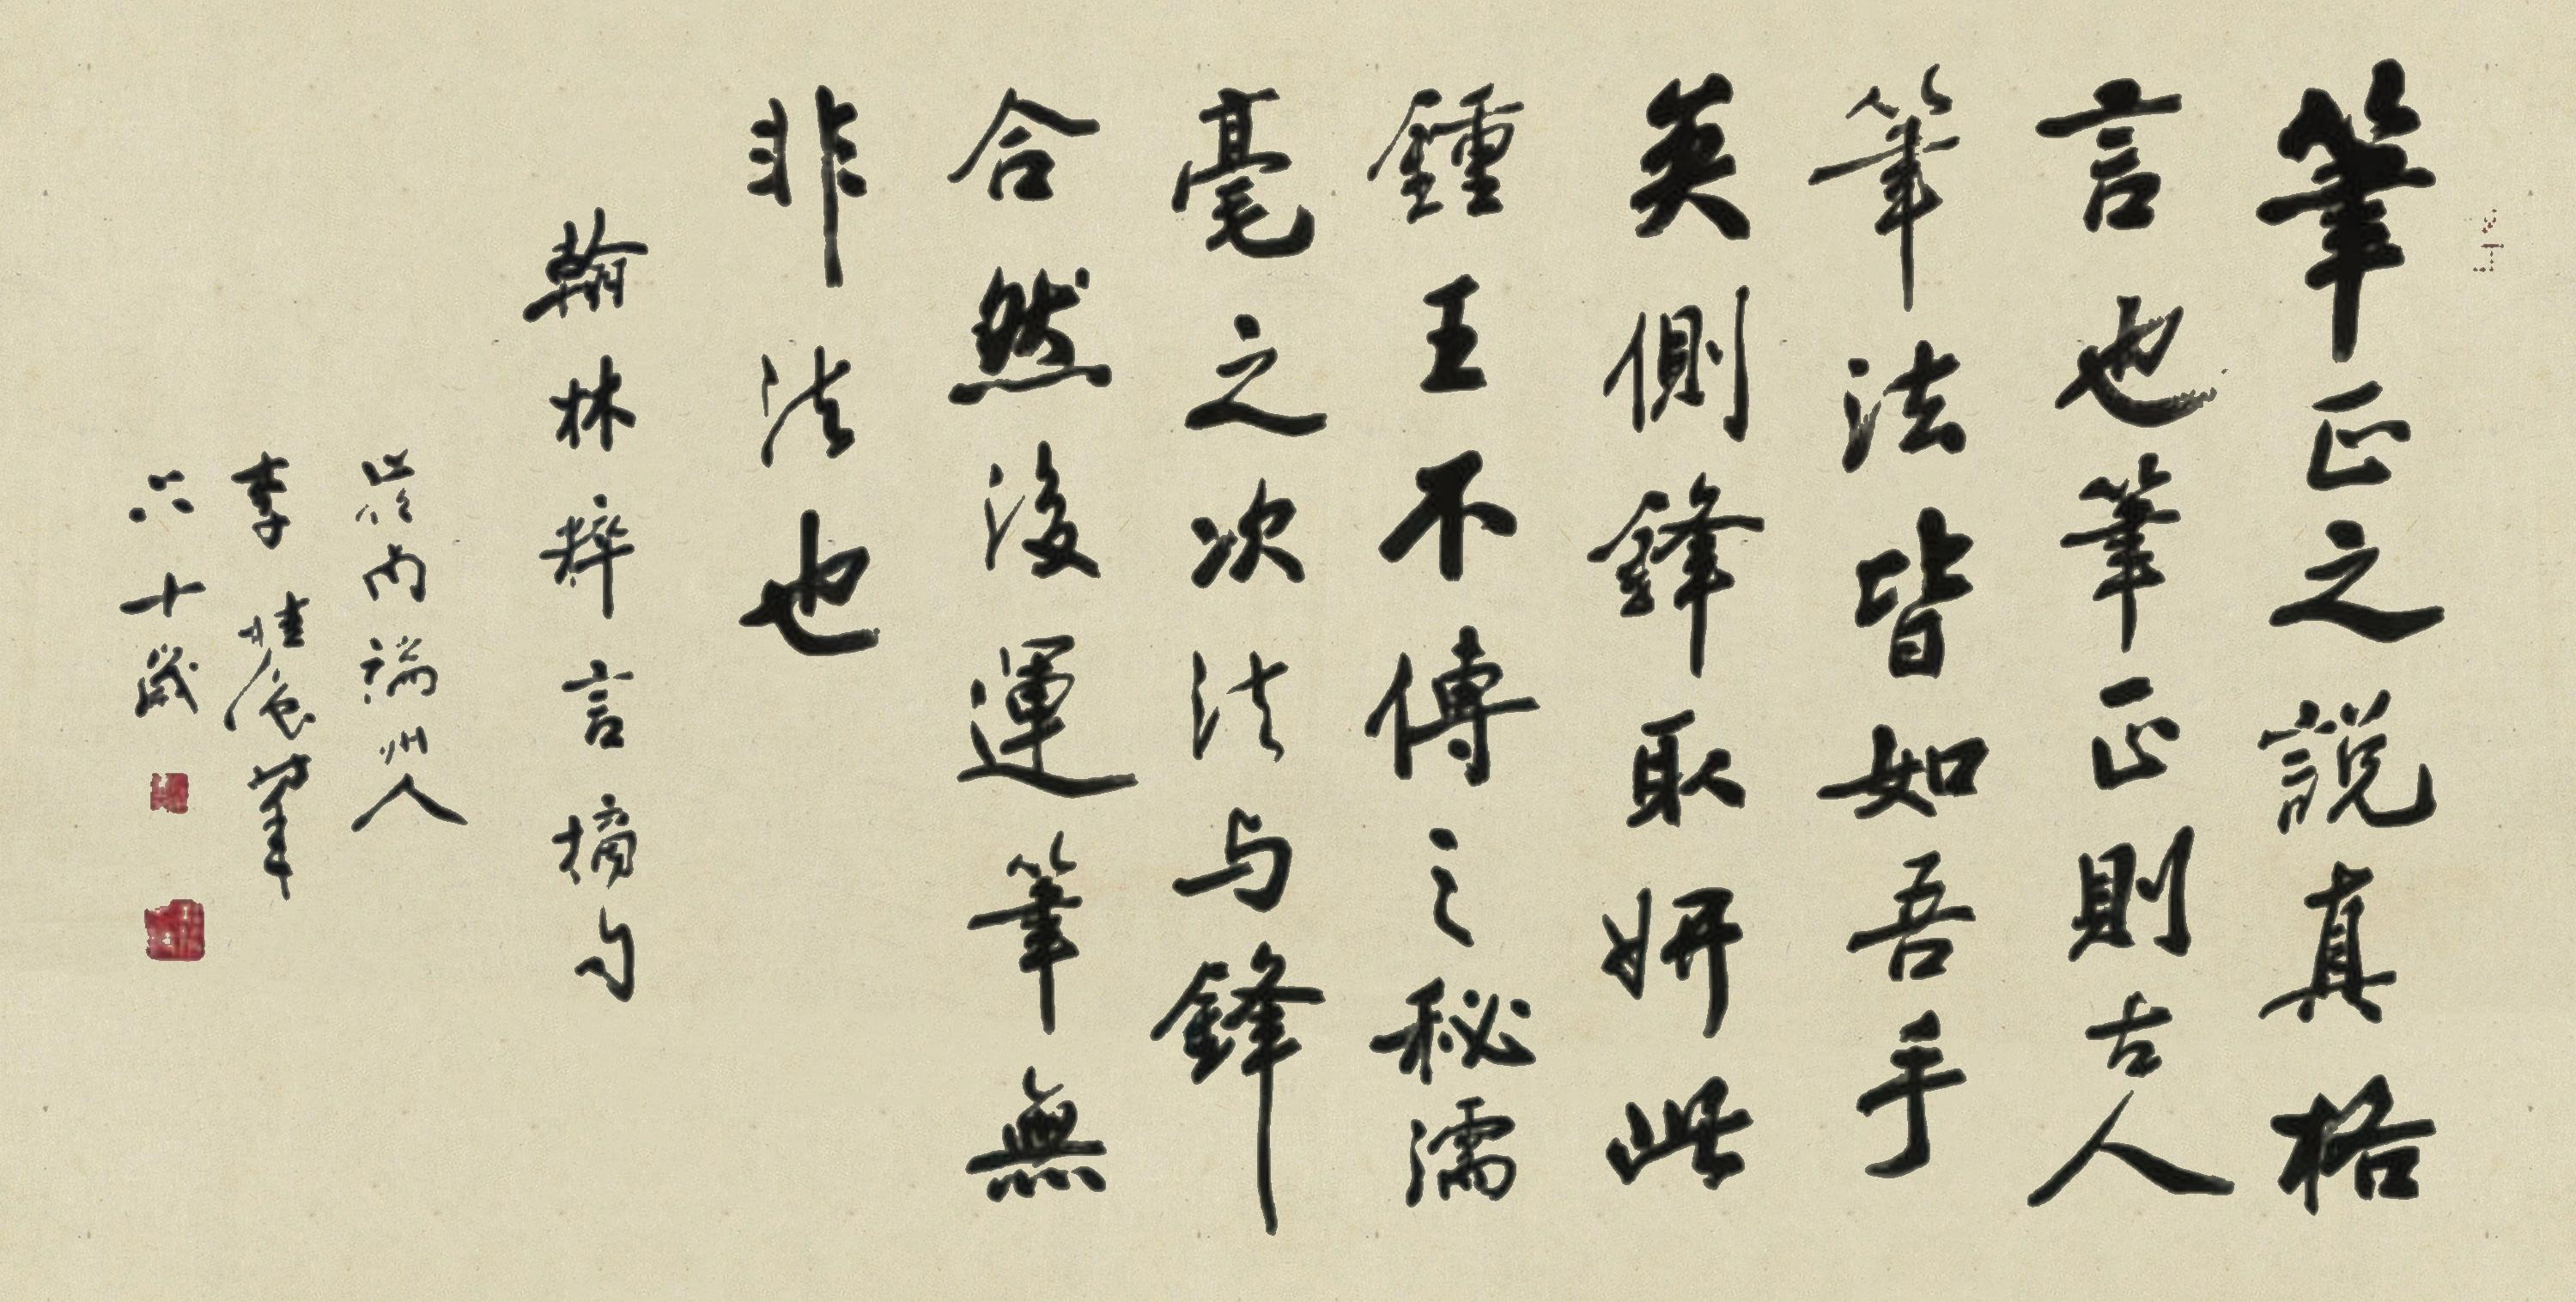 筆正之說真格
言也筆正則古人
筆法皆如吾手
矣側鋒取妍此
鍾王不傳之秘濡
毫之次法与鋒
合然後運筆無
非法也
翰林粹言摘句
端州人
李
六十歲